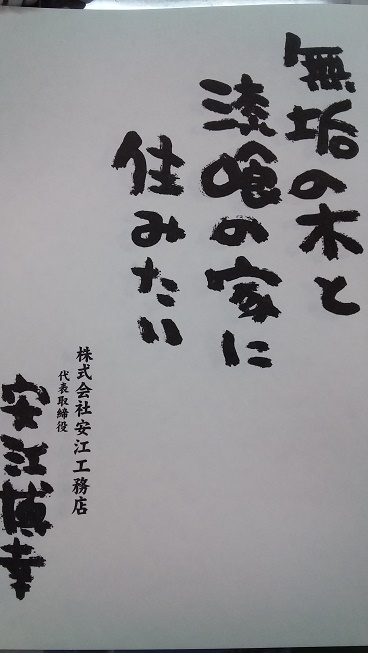 無垢の木と
漆喰の家に
住みたい
株式会社安江工務店
代表取締役
安江博幸